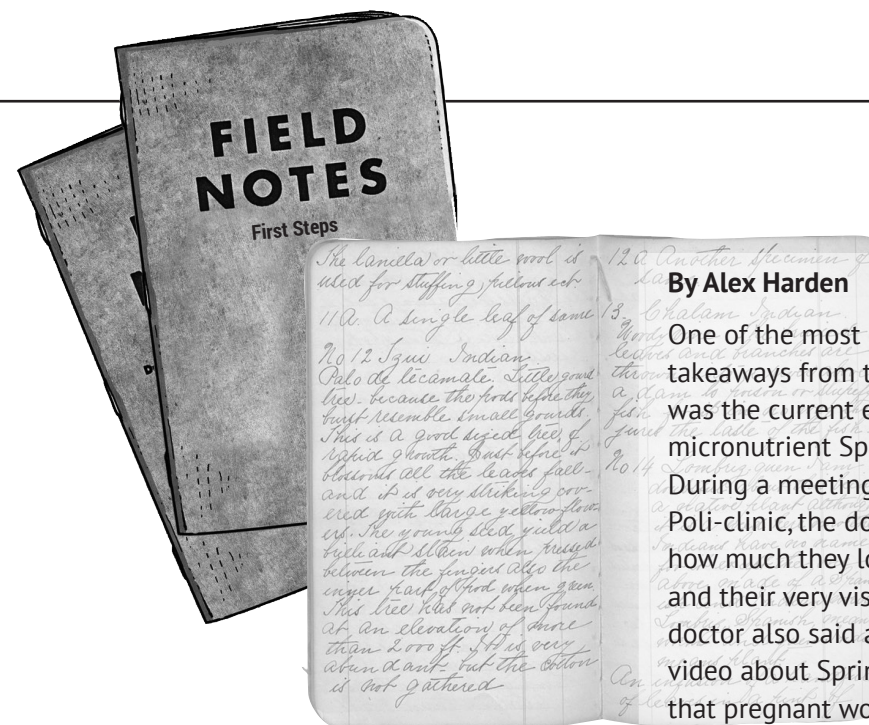 FIELD
NOTES
First Steps
The lanilla or little wool is
used for stuffing, pillows ect
11a. A single leaf of same
No 12 Indian
Palo de lecamate. Little gourd
tree - because the pods before they
burst resemble small gourds.
This is a good sized tree, of
rapid growth. Just before it
blossoms all the leaves fall-
and it is very striking cov-
ered with large yellow flow-
ers. The young seed yield a
brilliant stain when pressed
between the fingers also the
inner part of pod when green.
This tree has not been found
at an elevation of more
than 2000 ft. It is very
abundant- but the cotton
is not gathered
12 a Another specimen
13. Chalam Indian.
Woody
leaves and branches are
a dam to poison or stupefy
fish
the taste of the fish
No 14
a native plant
Indians have no name
above made of a
Spanish
An
of
By Alex Harden
One of the most
takeaways from t
was the current e
micronutrient Sp
During a meeting
Poli-clinic, the do
how much they lo
and their very vis
doctor also said a
video about Sprin
that pregnant wo